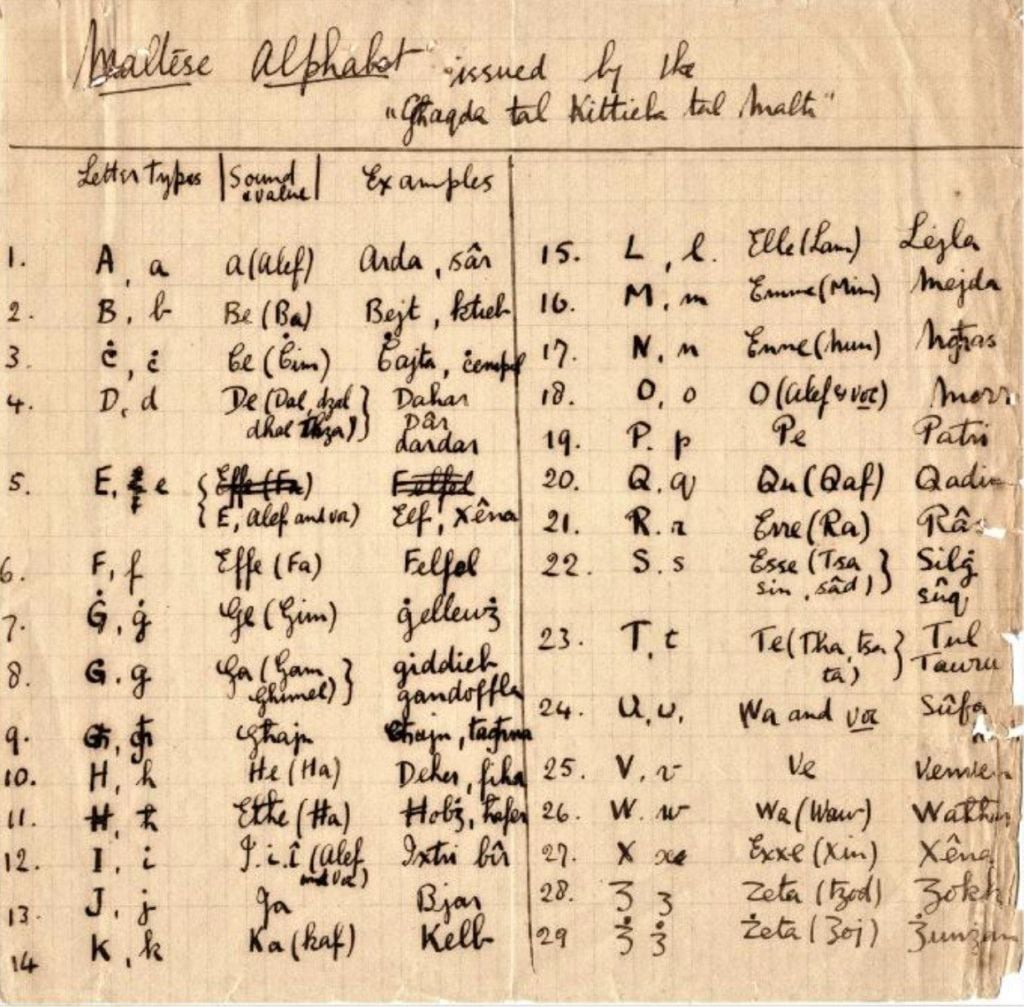 Maltese Alphabet issued by the
"Għaqda tal Kittieba tal Malti"
Letter types | Sound value | Examples
1. A, a a (Alef) Arda, sâr
2. B, b Be (Ba) Bejt, ktieb
3. Ċ, ċ Ċe (Ċim) Ċajta, ċempel
4. D, d De (Dal, dzal Dahar
dhal } Dâr
dardar
5. E, e Effe (Fa) Felfel
E, Alef and voc) Elf, Xêna
6. F, f Effe (Fa) Felfel
7. Ġ, ġ Ġe (Ġim) ġellewż
8. G, g Ga (Gam, giddieb
Ghimel) } gandoffla
9. Għ, għ Għajn Għajn, tagħna
10. H, h He (Ha) Deher, fiha
11. Ħ, ħ Eħħe (Ħa) Ħobż, ħafer
12. I, i I, i, î (Alef Ixtri bîr
and voc)
13. J, j Ja Bjar
14 K, k Ka (kaf) Kelb
15. L, l. Elle (Lam) Lejla
16. M, m Emme (Mim) Mejda
17. N, n Enne (Nun) Ngħas
18. O, o O (Alef & voc) Morr
19. P. p Pe Patri
20. Q, q Qu (Qaf) Qadi
21. R. r Erre (Ra) Râs
22. S. s Esse (Tsa Silġ
sin, sâd) } sûq
23. T, t Te (Tha, tsa Tul
ta) } Tawru
24. U, u, Wa and voc Sûfa
25. V, v Ve Venven
26. W. w Wa (Waw)
27. X x Exxe (Xin) Xêna
28. Ʒ ʒ Zeta (tzod) Ʒokk
29 Ʒ̇ ʒ̇ Żeta (Ʒoj) Ʒ̇unʒan